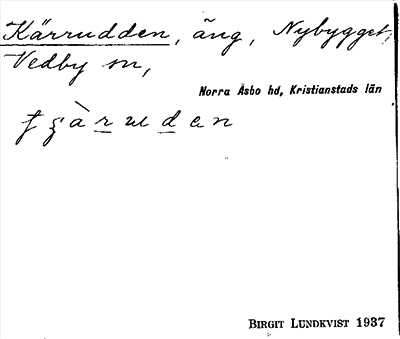 Kärrudden, äng, Nybygget,
Vedby sn,
Norra Åsbo hd, Kristianstads län
BIRGIT LUNDKVIST 1937